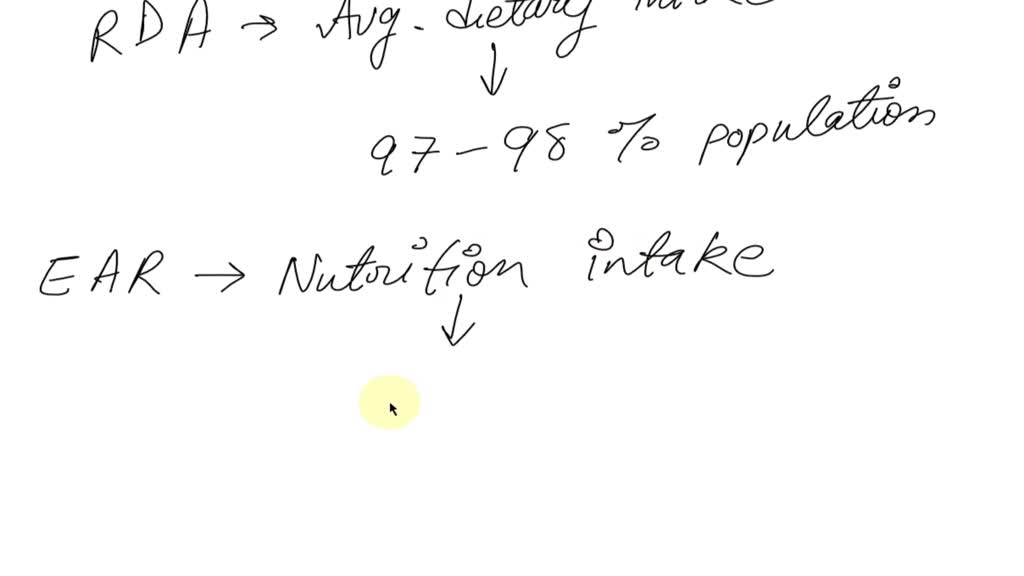 RDA → Avg. dietary
↓
97-98 % population
EAR → Nutrition intake
↓